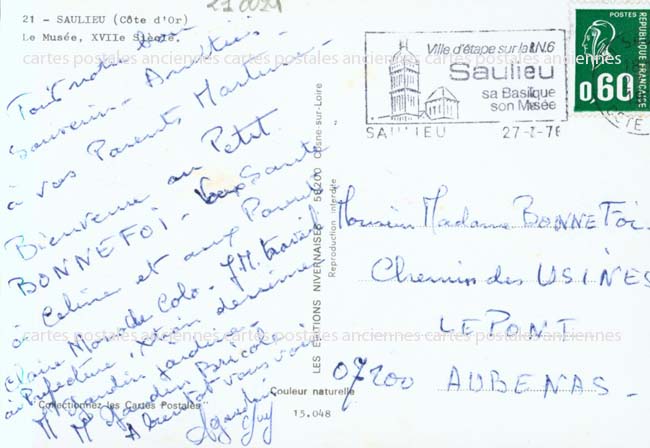 27 0021
21 - SAULIEU (Côte d'Or)
Le Musée, XVIIe Siècle.
Tout notre bon
Souvenir - Amitiés -
à vos Parents Martine -
Bienvenue au Petit
BONNEFOI - Santé
à Céline et aux Parents
Claire Mano de Colo - J.M. travail
à Préfecture,
M
Mr Jardin Bricole
A bientôt vous voir
Guy
Collectionnez les Cartes Postales
LES ÉDITIONS NIVERNAISES 58200 Cosne-sur-Loire
Reproduction interdite
Couleur naturelle
15.048
Ville d'étape sur la N.6
Saulieu
sa Basilique
son Musée
SAULIEU 27-7-76
POSTES
0,60
REPUBLIQUE FRANÇAISE
Monsieur Madame BONNEFOI.
Chemin des USINES
LE PONT
07200 AUBENAS -
cartes postales anciennes cartes postales anciennes cartes postales anciennes
cartes postales anciennes cartes postales anciennes cartes postales anciennes